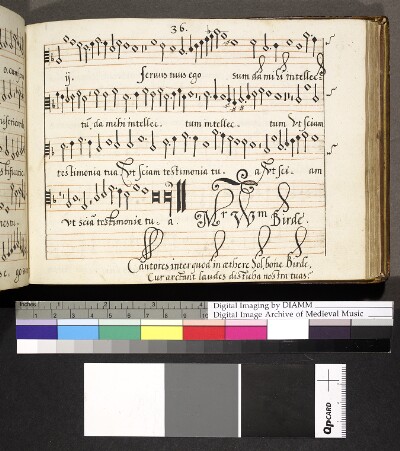 36.
ij. servus tuus ego sum da mihi intellec
tū, da mihi intellec. tum intellec. tum Vt sciam
testimonia tua Vt sciam testimonia tu. a Vt sci. am
Vt sciā testimonia tu. a. Mr Wm Birde.
Cantores inter quod in æthere Sol, bone Birde,
Cur arctant laudes disticha nostra tuas?
Inches
Digital Imaging by DIAMM
Digital Image Archive of Medieval Music
QPCARD